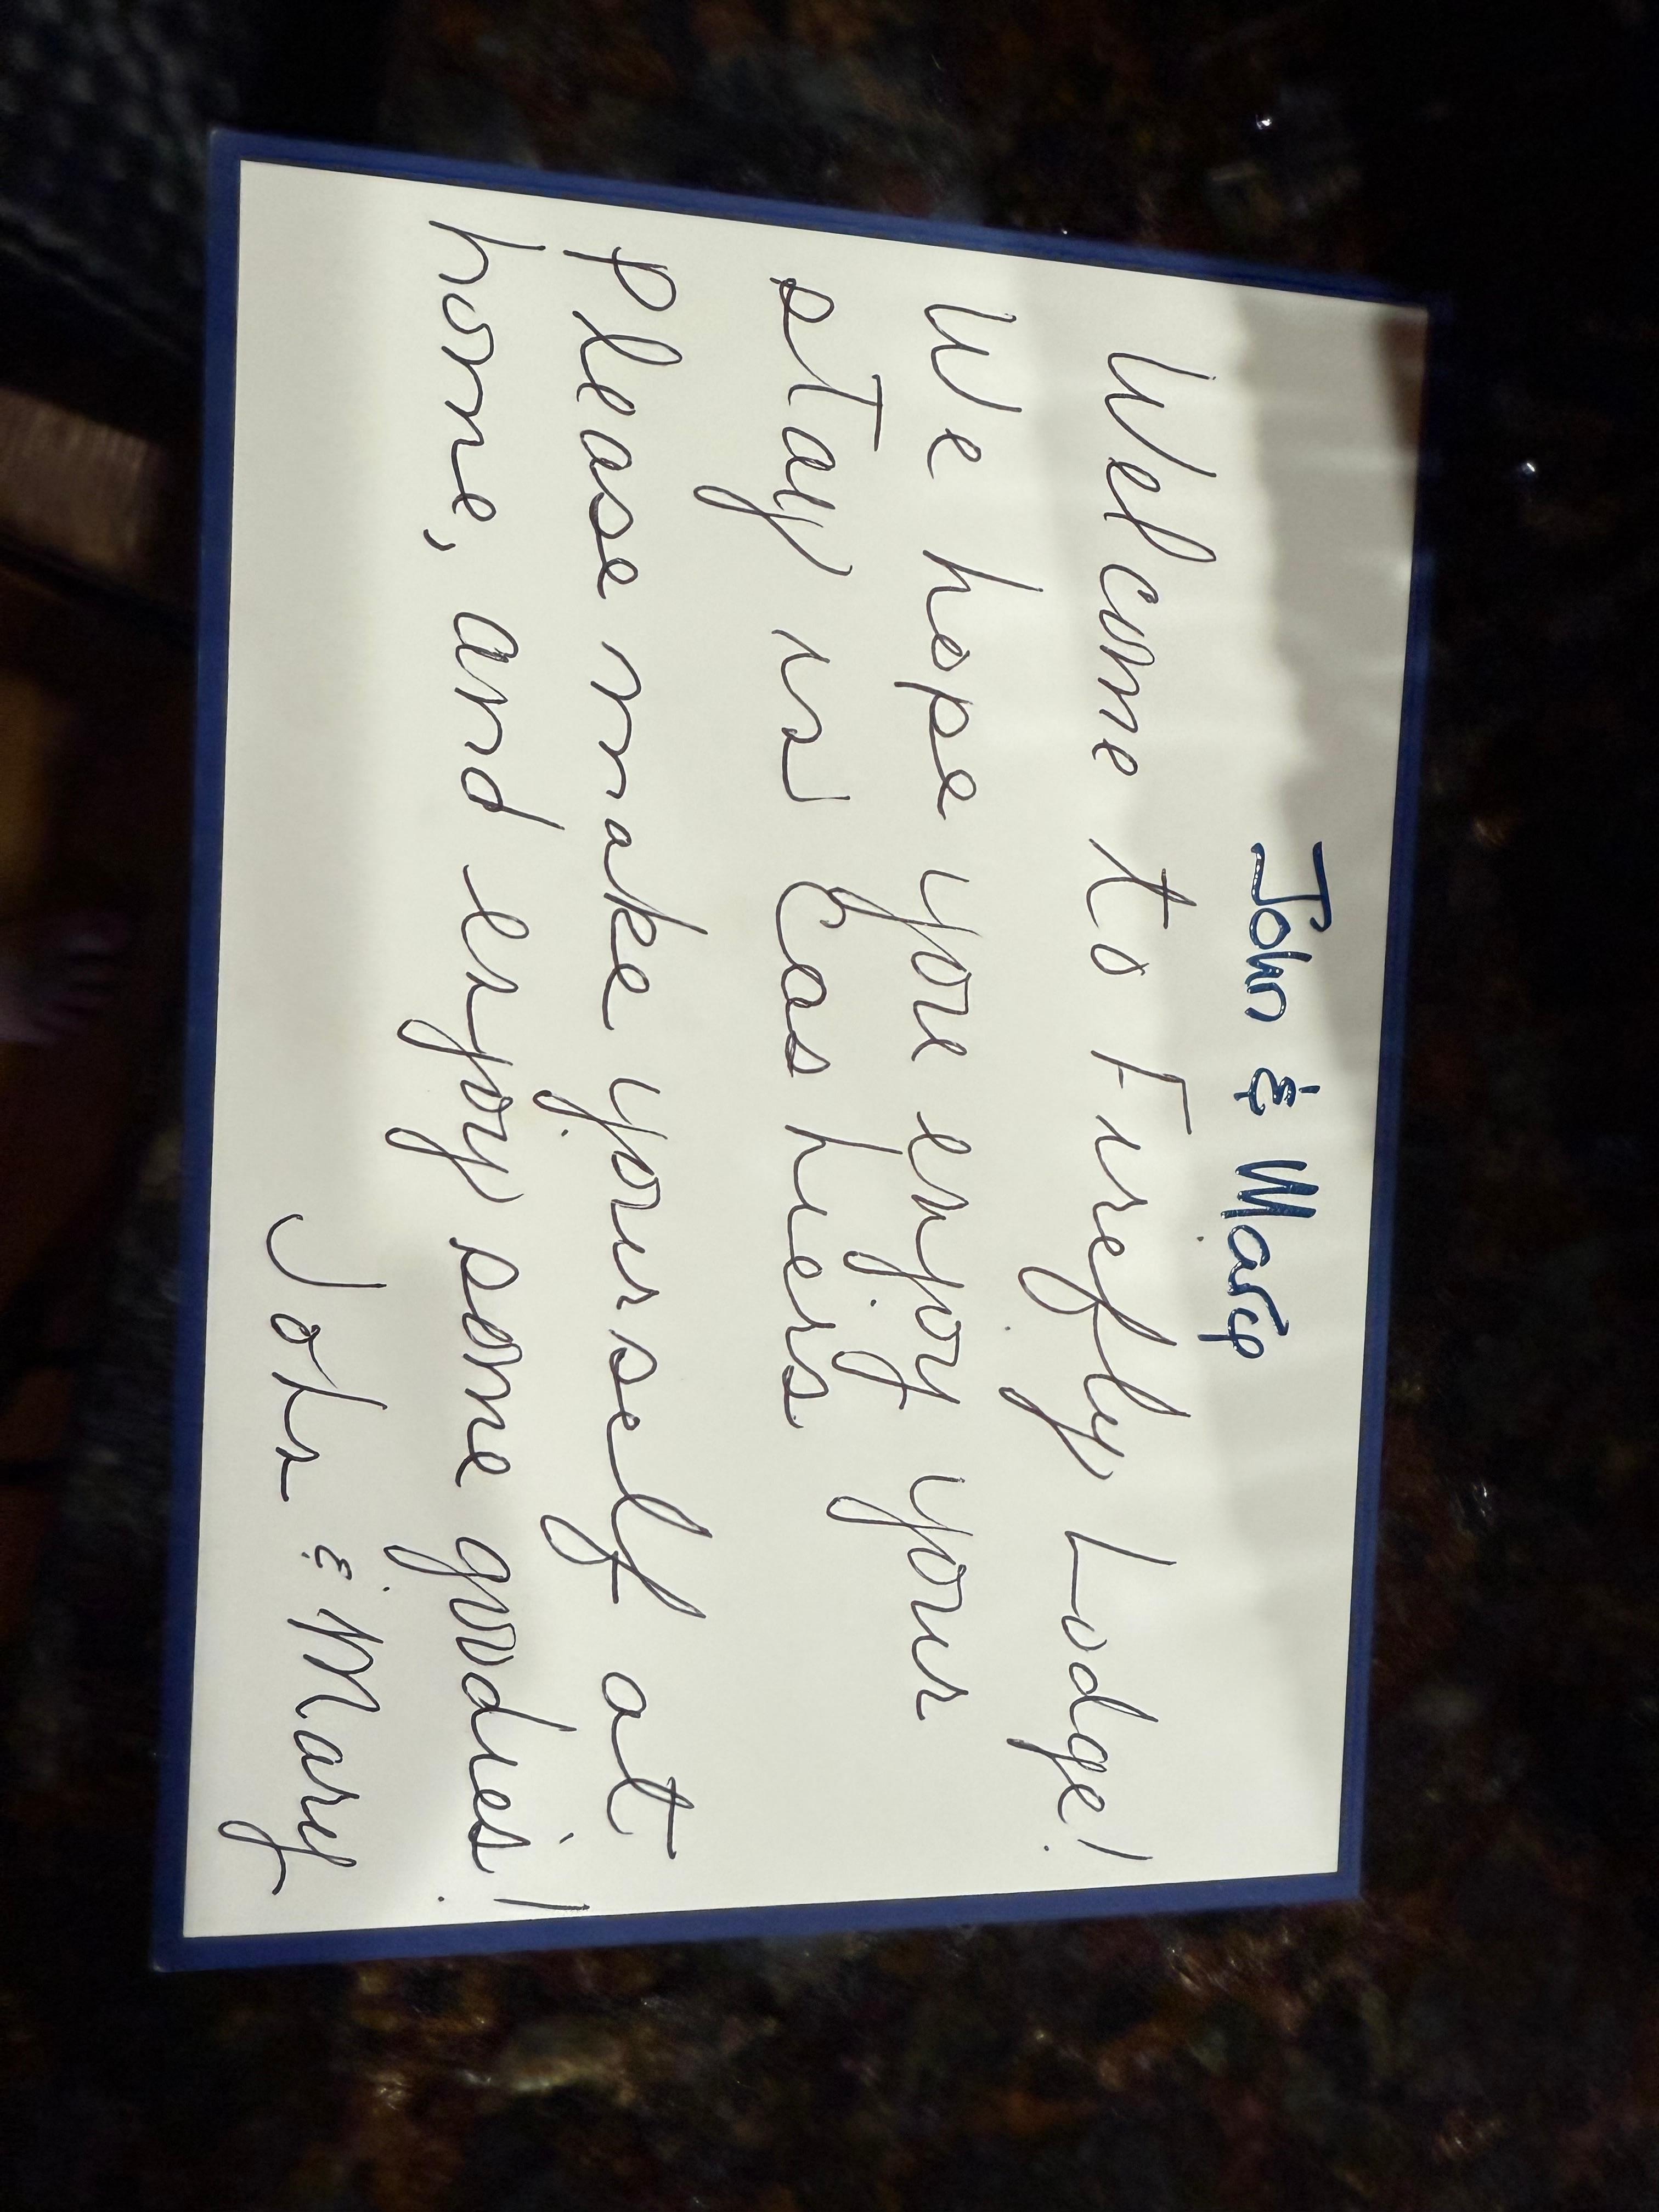 John & Mary
Welcome to Firefly Lodge!
We hope you enjoy your
stay in Cashiers
Please make yourself at
home, and enjoy some goodies!
John & Mary